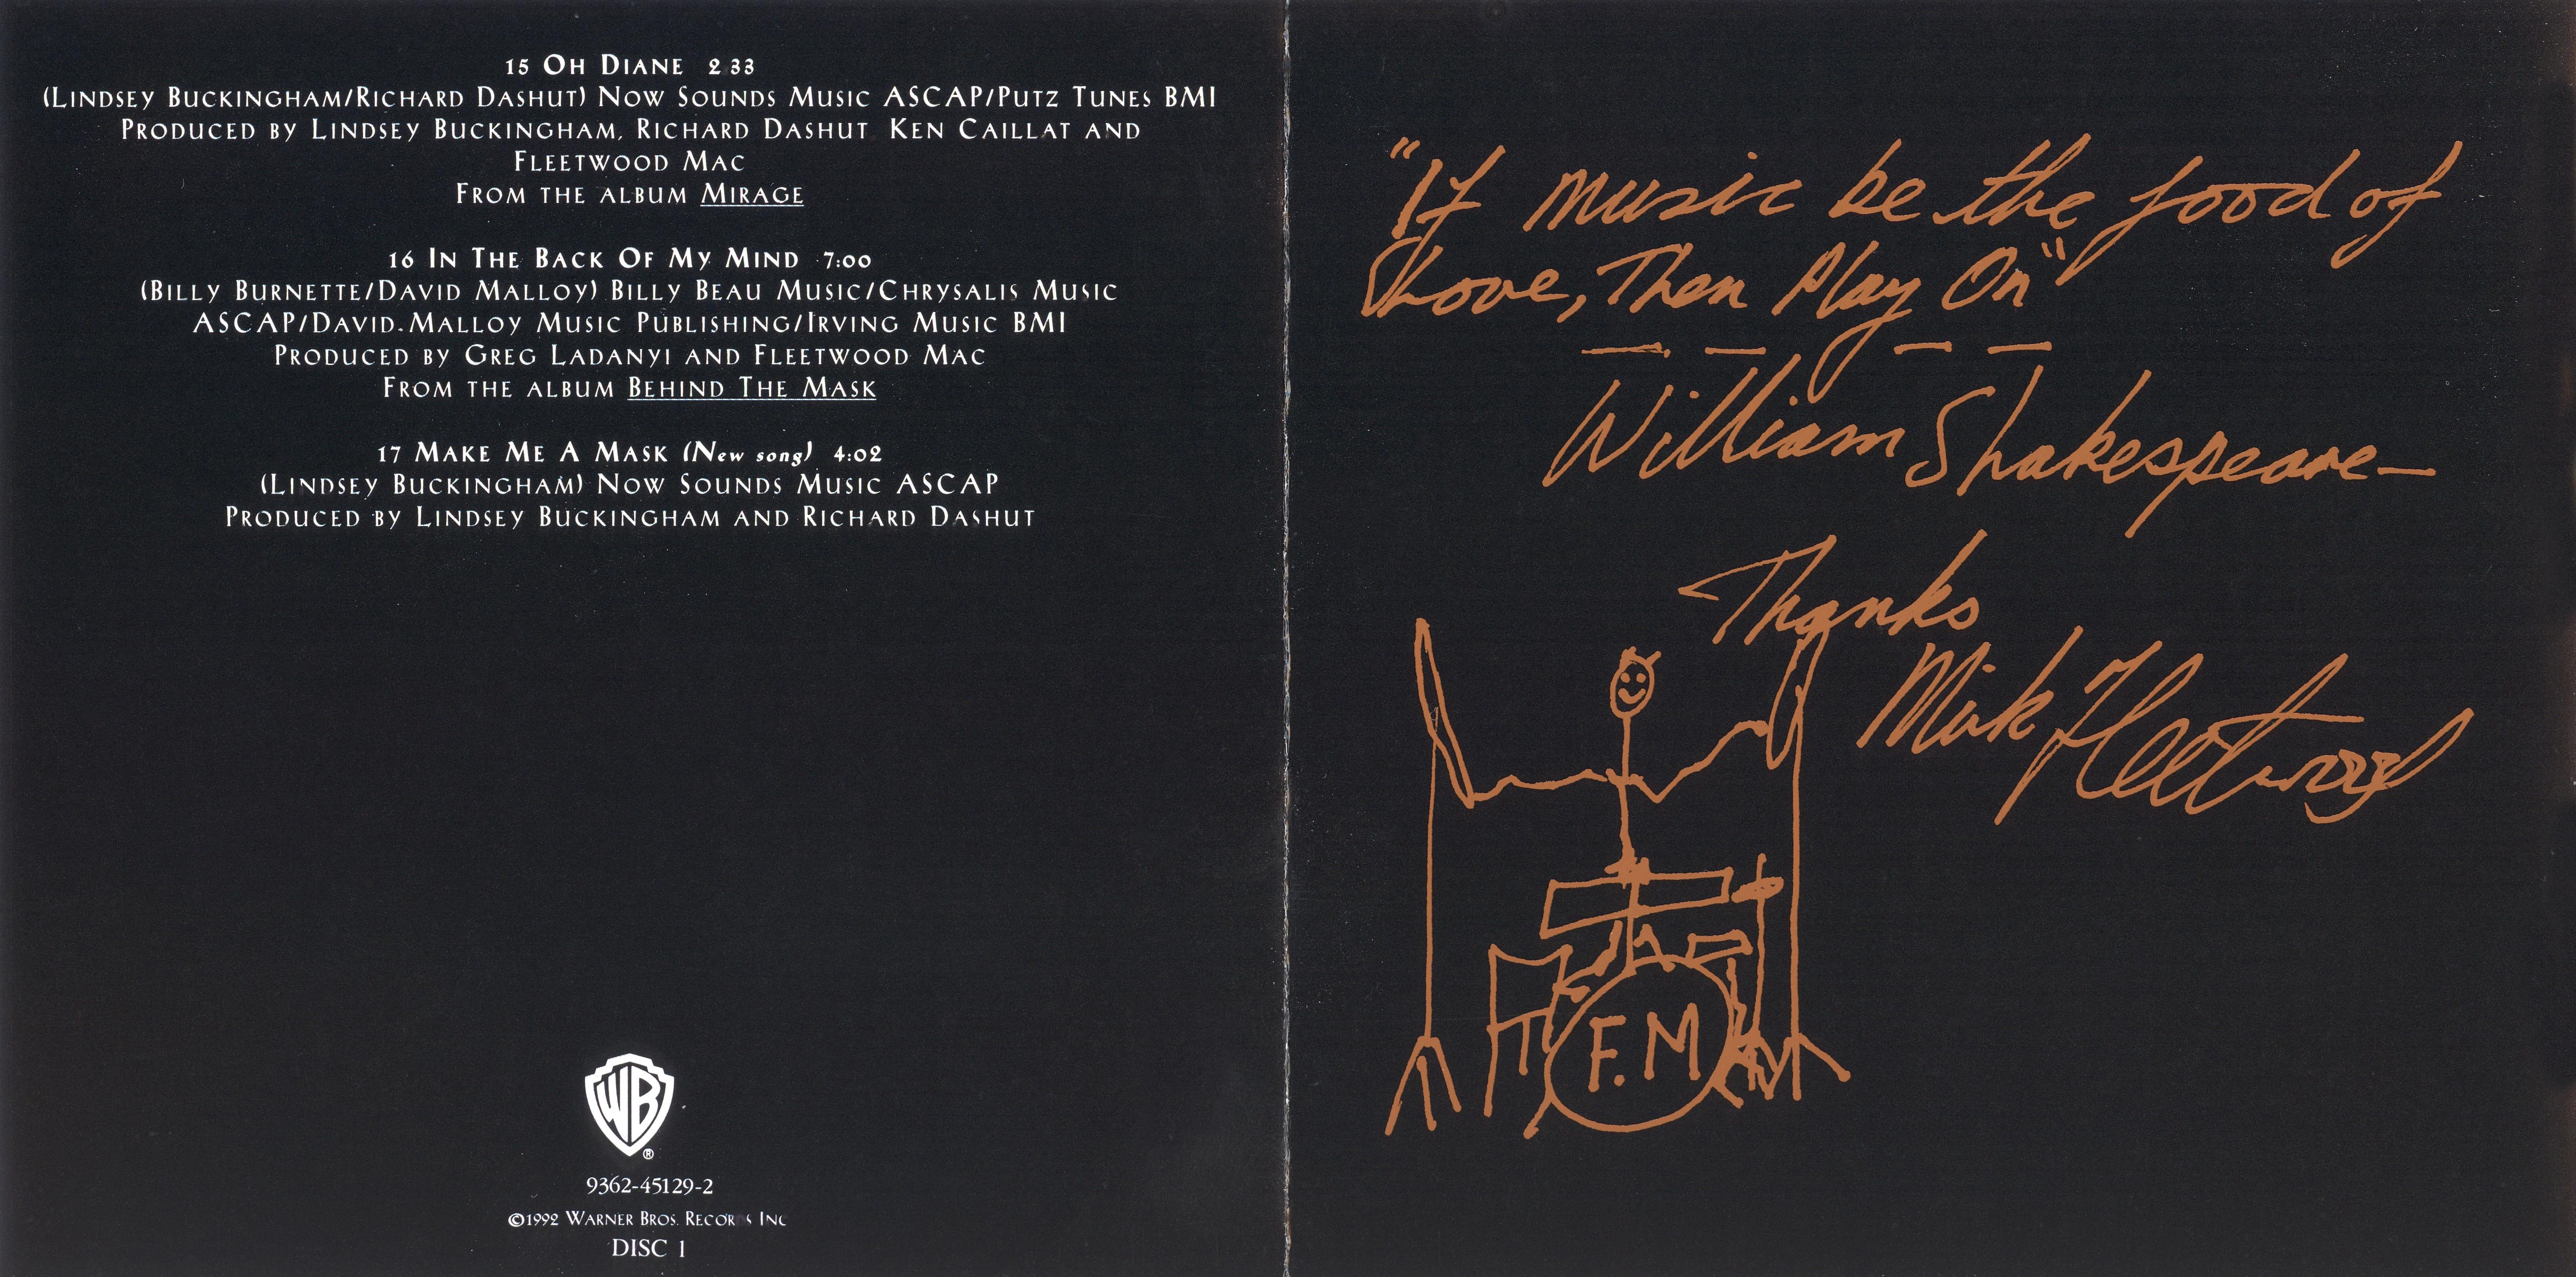 15 OH DIANE 2 33
(LINDSEY BUCKINGHAM/RICHARD DASHUT) NOW SOUNDS MUSIC ASCAP/PUTZ TUNES BMI
PRODUCED BY LINDSEY BUCKINGHAM, RICHARD DASHUT KEN CAILLAT AND
FLEETWOOD MAC
FROM THE ALBUM MIRAGE
16 IN THE BACK OF MY MIND 7:00
(BILLY BURNETTE/DAVID MALLOY) BILLY BEAU MUSIC/CHRYSALIS MUSIC
ASCAP/DAVID MALLOY MUSIC PUBLISHING/IRVING MUSIC BMI
PRODUCED BY GREG LADANYI AND FLEETWOOD MAC
FROM THE ALBUM BEHIND THE MASK
17 MAKE ME A MASK (New song) 4:02
(LINDSEY BUCKINGHAM) NOW SOUNDS MUSIC ASCAP
PRODUCED BY LINDSEY BUCKINGHAM AND RICHARD DASHUT
WB
®
9362-45129-2
©1992 WARNER BROS. RECORDS INC
DISC 1
"If music be the food of
Love, Then Play On"
William Shakespeare—
Thanks
Mick Fleetwood
F.M